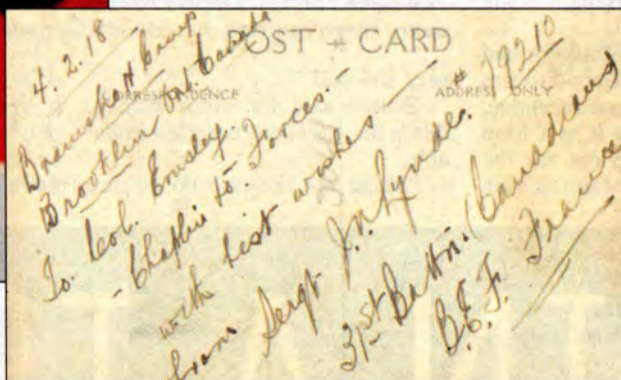 POST CARD
CORRESPONDENCE
ADDRESS ONLY
4.2.18
Bramshott Camp
Brooklin Ont. Canada
To. Col. Emsley
- Chaplin to. Forces. -
with best wishes
from Sergt J.N. Lynde. # 79210
31st Battn. (Canadians)
B.E.F. France